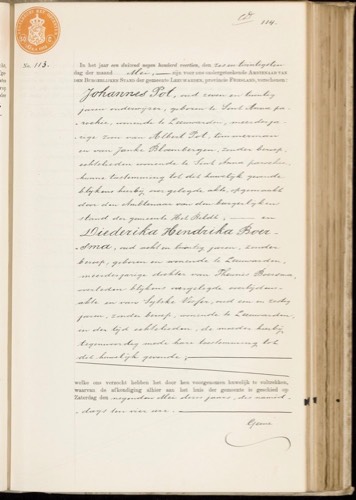 114.
No. 113.
In het jaar een duizend negen honderd veertien, den zes en twintigsten
dag der maand Mei, zijn voor ons ondergeteekende Ambtenaar van
den Burgerlijken Stand der gemeente Leeuwarden, provincie Friesland, verschenen:
Johannes Pot, oud zeven en twintig
jaren, onderwijzer, geboren te Sint Anna pa-
rochie, wonende te Leeuwarden, meerderja-
rige zoon van Albert Pot, timmerman
en van Janke Bloembergen, zonder beroep,
echtelieden wonende te Sint Anna parochie,
hunne toestemming tot dit huwelijk gevende
blijkens hierbij overgelegde akte, opgemaakt
door den Ambtenaar van den burgerlijken
stand der gemeente Het Bildt, en
Diederika Hendrika Boer-
sma, oud acht en twintig jaren, zonder
beroep, geboren en wonende te Leeuwarden,
meerderjarige dochter van Thomas Boersma,
overleden blijkens overgelegde overlijdens-
akte en van Sytske, oud een en zestig
jaren, zonder beroep, wonende te Leeuwarden,
in der tijd echtelieden, de moeder hierbij
tegenwoordig mede hare toestemming tot
dit huwelijk gevende;
welke ons verzocht hebben het door hen voorgenomen huwelijk te voltrekken,
waarvan de afkondiging alhier aan het huis der gemeente is geschied op
Zaterdag den negenden Mei dezes jaars, des namid-
dags ten vier ure.